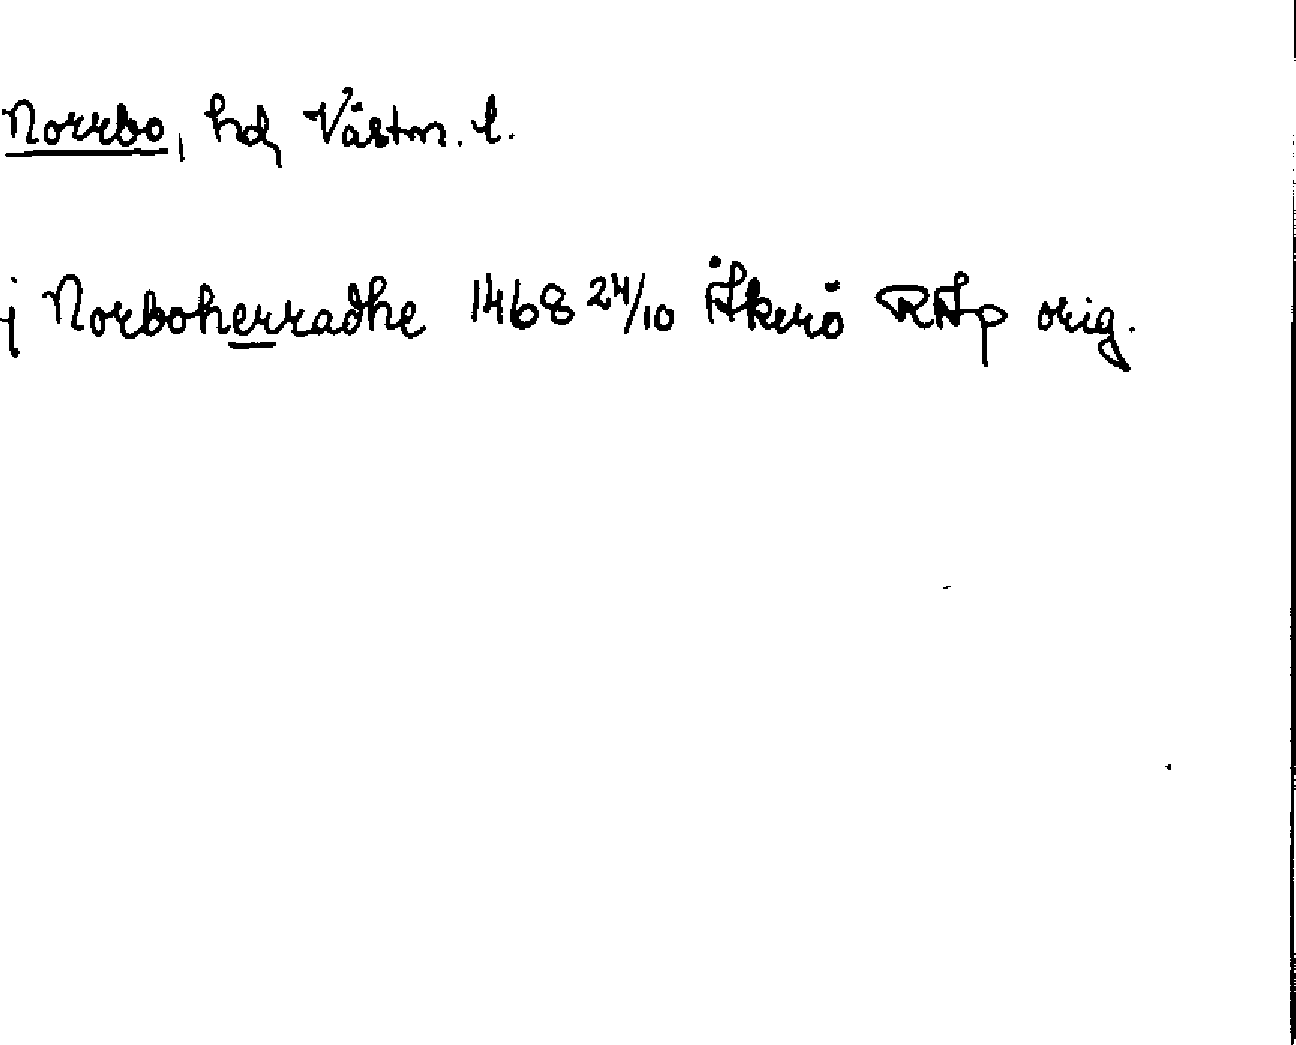 Norrbo, hd, Västm. l.
j Norboherradhe 1468 24/10 Åkerö RAp orig.